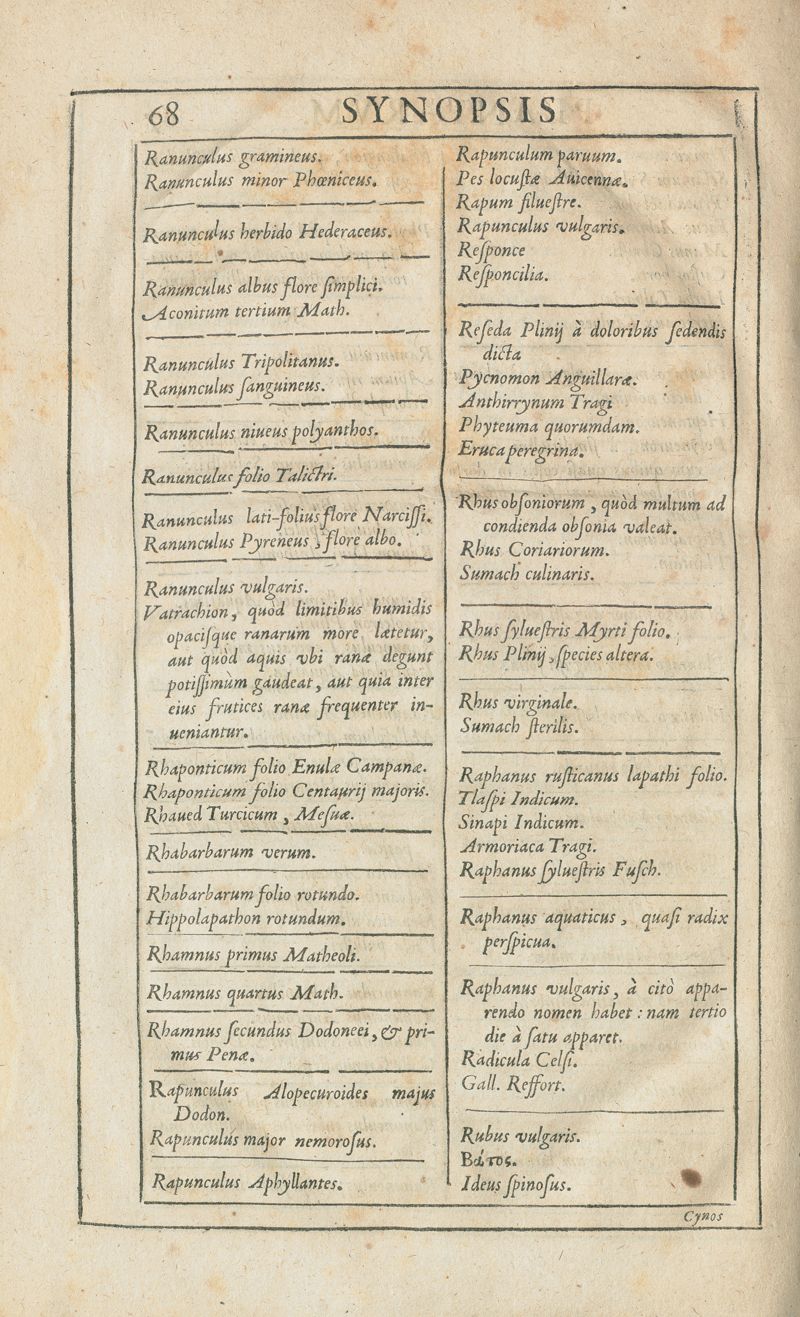 68
SYNOPSIS
Ranunculus gramineus.
Ranunculus minor Phœniceus.
Ranunculus herbido Hederaceus.
Ranunculus albus flore ſimplici.
Aconitum tertium Math.
Ranunculus Tripolitanus.
Ranunculus ſanguineus.
Ranunculus niueus polyanthos.
Ranunculus folio Talictri.
Ranunculus lati-folius flore Narciſſi.
Ranunculus Pyreneus, flore albo.
Ranunculus vulgaris.
Vatrachion, quòd limitibus humidis
opaciſque ranarum more latetur,
aut quòd aquis vbi ranæ degunt
potiſſimùm gaudeat, aut quia inter
eius frutices ranæ frequenter in-
ueniantur.
Rhaponticum folio Enulæ Campanæ.
Rhaponticum folio Centaurij majoris.
Rhaued Turcicum, Meſuæ.
Rhabarbarum verum.
Rhabarbarum folio rotundo.
Hippolapathon rotundum.
Rhamnus primus Matheoli.
Rhamnus quartus Math.
Rhamnus ſecundus Dodoneei, & pri-
mus Penæ.
Rapunculus Alopecuroides majus
Dodon.
Rapunculus major nemoroſus.
Rapunculus Aphyllantes.
Rapunculum paruum.
Pes locuſtæ Auicennæ.
Rapum ſilueſtre.
Rapunculus vulgaris.
Reſponce
Reſponcilia.
Reſeda Plinij à doloribus ſedendis
dicta
Pycnomon Anguillaræ.
Anthirrynum Tragi
Phyteuma quorumdam.
Eruca peregrina.
Rhus obſoniorum, quòd multum ad
condienda obſonia valeat.
Rhus Coriariorum.
Sumach culinaris.
Rhus ſylueſtris Myrti folio.
Rhus Plinij, ſpecies altera.
Rhus virginale.
Sumach ſterilis.
Raphanus ruſticanus lapathi folio.
Tlaſpi Indicum.
Sinapi Indicum.
Armoriaca Tragi.
Raphanus ſylueſtris Fuſch.
Raphanus aquaticus, quaſi radix
perſpicua.
Raphanus vulgaris, à citò appa-
rendo nomen habet: nam tertio
die à ſatu apparet.
Radicula Celſi.
Gall. Reffort.
Rubus vulgaris.
Βάτος.
Ideus ſpinoſus.
Cynos